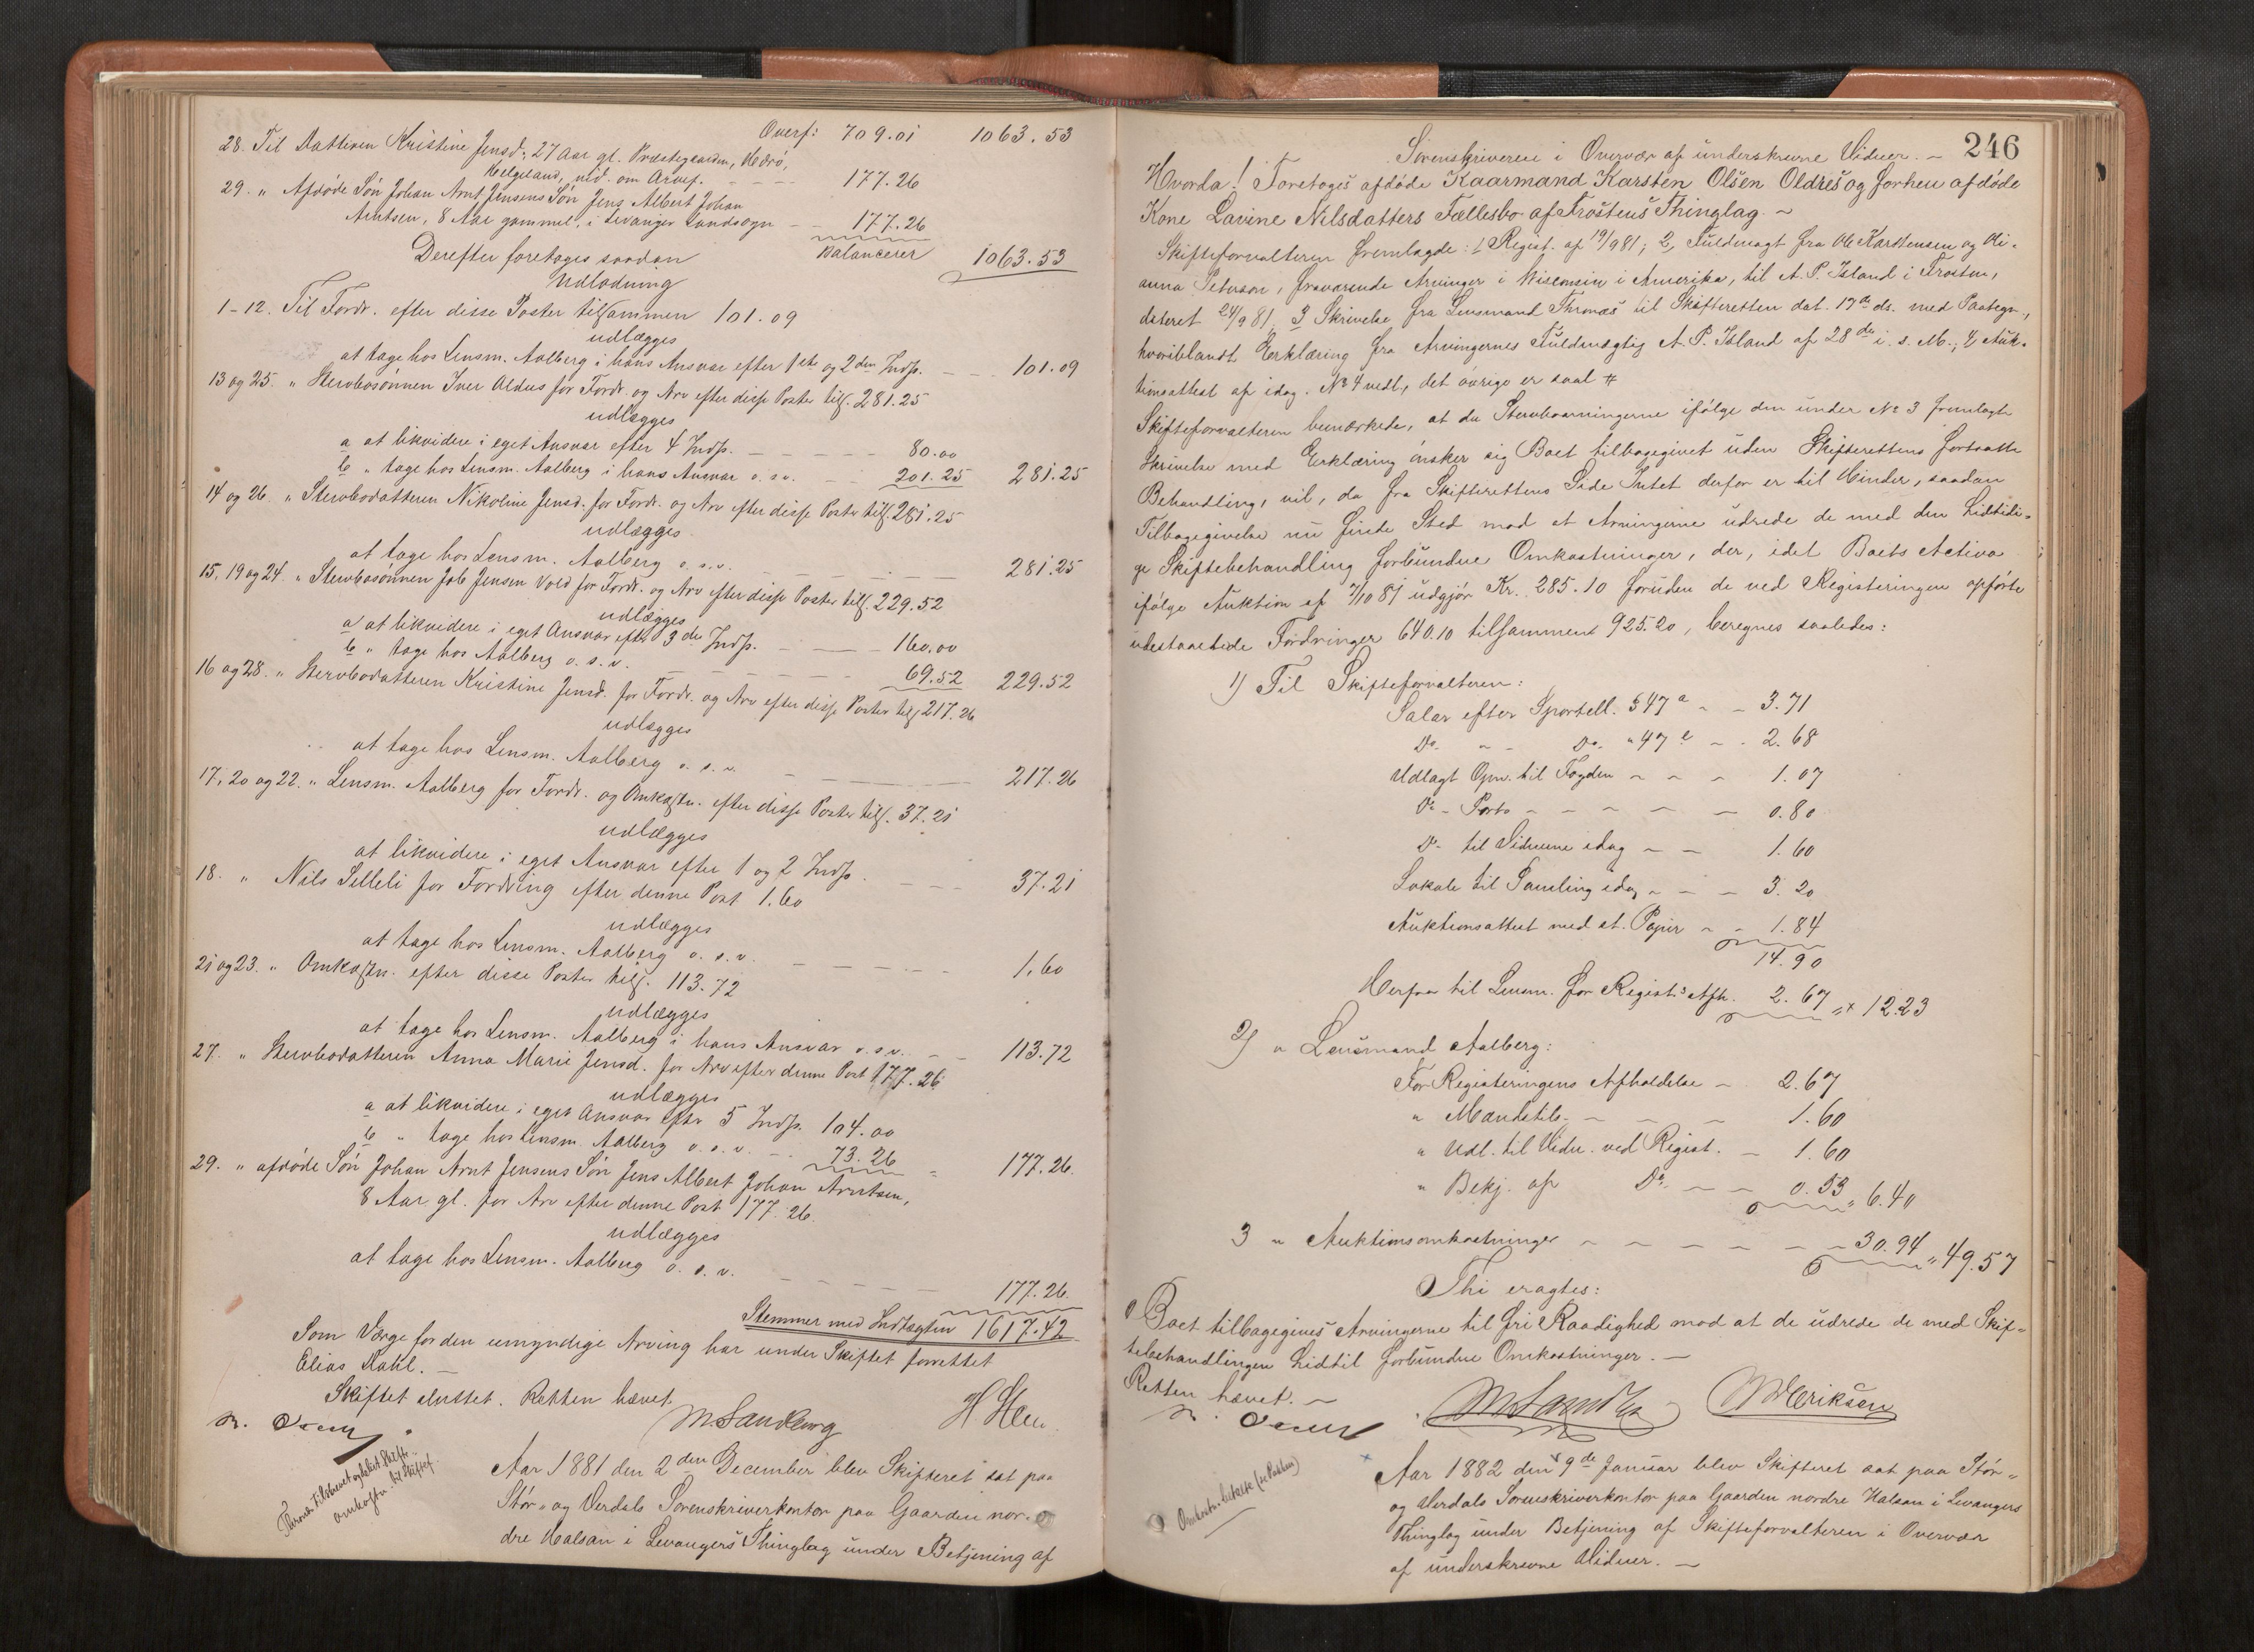 Overf: 709.01 1063.53
28. Til Datteren Kristine Jensd., 27 Aar gl. Præstegaarden, Herø,
Helgeland, udd. om Arvef. 177.26
29. " Afdøde Søn Johan Arnt Jensens Søn Jens Albert Johan
Arntsen, 8 Aar gammel, i Levanger Landsogn 177.26
Balancerer 1063.53
Derefter foretoges saadan
Udlodning
1-12. Til Fordr. efter disse Poster tilsammen 101.09
udlægges
at tage hos Lensm. Aalberg i hans Ansvar efter 1ste og 2den Indp. 101.09
13 og 25. " Stervbosønnen Iver Aldus for Fordr. og Arv efter disse Poster tils. 281.25
udlægges
a at likvidere i eget Ansvar efter 4 Indp. 80.00
b " tage hos Lensm. Aalberg i hans Ansvar o.s.v. 201.25 281.25
14 og 26. " Stervbodatteren Nikoline Jensd. for Fordr. og Arv efter disse Poster tils. 281.25
udlægges
at tage hos Lensm. Aalberg o.s.v. 281.25
15, 19 og 24. " Stervbosønnen Job Jensen Vold for Fordr. og Arv efter disse Poster tils. 229.52
udlægges
a at likvidere i eget Ansvar efter 3de Indp. 160.00
b " tage hos Aalberg o.s.v. 69.52 229.52
16 og 28. " Stervbodatteren Kristine Jensd. for Fordr. og Arv efter disse Poster tils. 217.26
udlægges
at tage hos Lensm. Aalberg o.s.v. 217.26
17, 20 og 22. " Lensm. Aalberg for Fordr. og Omkostn. efter disse Poster tils. 37.21
udlægges
at likvidere i eget Ansvar efter 1 og 2 Indp. 37.21
18. " Nils Selleli for Fordring efter denne Post 1.60
udlægges
at tage hos Lensm. Aalberg o.s.v. 1.60
21 og 23. " Omkostn. efter disse Poster tils. 113.72
udlægges
at tage hos Lensm. Aalberg i hans Ansvar o.s.v. 113.72
27. " Stervbodatteren Anna Marie Jensd. for Arv efter denne Post 177.26
udlægges
a at likvidere i eget Ansvar efter 5 Indp. 104.00
b " tage hos Lensm. Aalberg o.s.v. 73.26 177.26.
29. " afdøde Søn Johan Arnt Jensens Søn Jens Albert Johan Arntsen,
8 Aar gl. for Arv efter denne Post 177.26.
udlægges
at tage hos Lensm. Aalberg o.s.v. 177.26.
Stemmer med Indtægten 1617.42
Som Værge for den umyndige Arving har under Skiftet forrettet
Elias Dahl.
Skiftet sluttet. Retten hævet.
M. Sandberg
Aar 1881 den 2den December blev Skifteret sat paa
Stør- og Verdals Sorenskriverkontor paa Gaarden nor-
dre Halsan i Levangers Thinglag under Betjening af
246
Sorenskriveren i Overvær af underskrevne Vidner.
Hvorda! Foretoges afdøde Kaarmand Karsten Olsen Oldres og forhen afdøde
Kone Lavine Nilsdatters Fællesbo af Frostens Thinglag.
Skifteforvalteren fremlagde: 1 Regist. af 19/9 81; 2, Fuldmagt fra Ole Karstensen og Ni-
anna Peterson, fraværende Arvinger i Wisconsin i Amerika, til A. P. Island i Frosten,
dateret 24/9 81, 3 Skrivelse fra Lensmand Thronæs til Skifteretten dat. 17de ds. med Paategn.,
hvoriblandt Erklæring fra Arvingernes Fuldmægtig A. P. Island af 28de i. s. M.; 4 Auk-
tionsattest af idag. No 4 vedl., det øvrige er saal #
Skifteforvalteren bemærkede, at da Stervboarvingerne ifølge den under No 3 fremlagte
Skrivelse med Erklæring ønsker sig Boet tilbagegivet uden Skifterettens fortsatte
Behandling, vil, da fra Skifterettens Side Intet derfor er til Hinder, saadan
Tilbagegivelse nu finde Sted mod at Arvingerne udrede de med den hidtidi-
ge Skiftebehandling forbundne Omkostninger, der, idet Boets Activa
ifølge Auktion af 7/10 81 udgjør Kr. 285.10 foruden de ved Registeringen opførte
udestaaende Fordringer 640.10 tilsammen 925.20, beregnes saaledes:
1) Til Skifteforvalteren:
Salar efter Sportell. § 47 a 3.71
Do. " Do. " 47 e 2.68
Udlagt Opr. til Fogden 1.07
Do - Porto 0.80
Do til Vidnerne idag 1.60
Lokale til Samling idag 3.20
Auktionsattest med st. Papir 1.84
14.90
Herfra til Lensm. for Registrs Afh. 2.67 12.23
2) " Lensmand Aalberg:
For Registeringens Afholdelse 2.67
" Mandstilr. 1.60
" Udl. til Vidn. ved Regist. 1.60
" Bekj. af Do. 0.53 " 6.40
3 " Auktionsomkostninger 30.94 " 49.57
Thi eragtes:
Boet tilbagegives Arvingerne til fri Raadighed mod at de udrede de med Skif-
tebehandlingen hidtil forbundne Omkostninger.
Retten hævet.
Eriksen
Omkostn. betalte (se Pakken)
Aar 1882 den 9de Januar blev Skifteret sat paa Stør-
og Verdals Sorenskriverkontor paa Gaarden nordre Halsan i Levangers
Thinglag under Betjening af Skifteforvalteren i Overvær
af underskrevne Vidner.